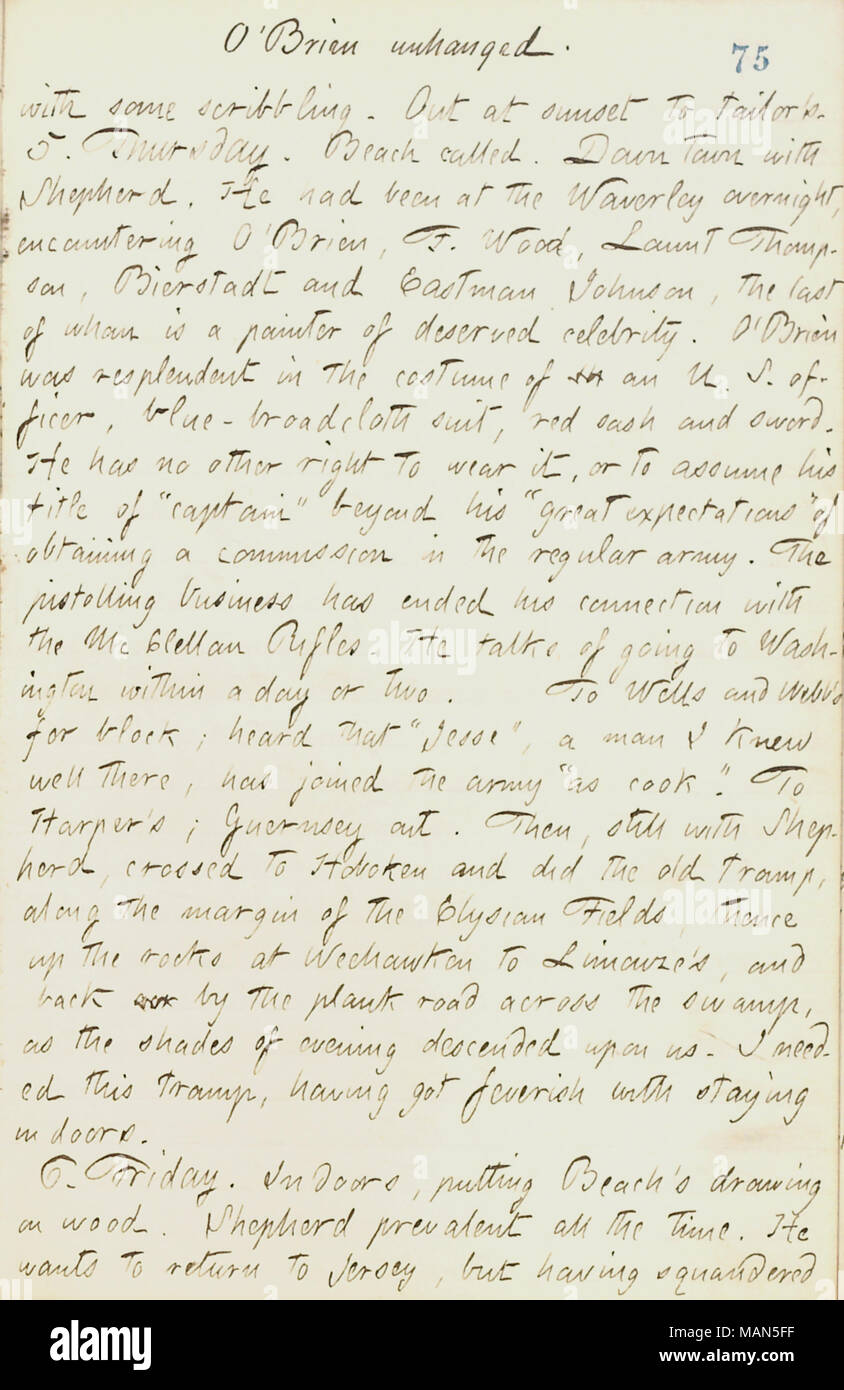 O'Brien unhanged.
75
with some scribbling. Out at sunset to tailor's.
5. Thursday. Beach called. Down town with
Shepherd. He had been at the Waverley overnight,
encountering O'Brien, F. Wood, Launt Thomp-
son, Bierstadt and Eastman Johnson, the last
of whom is a painter of deserved celebrity. O'Brien
was resplendent in the costume of an U. S. of-
ficer, blue-broadcloth suit, red sash and sword.
He has no other right to wear it, or to assume his
title of "captain" beyond his "great expectations" of
obtaining a commission in the regular army. The
pistolling business has ended his connection with
the Mc Clellan Rifles. He talks of going to Wash-
ington within a day or two. To Wells and Webb's
for block; heard that "Jesse", a man I knew
well there, has joined the army "as cook." To
Harper's; Guernsey out. Then, still with Shep-
herd, crossed to Hoboken and did the old tramp,
along the margin of the Elysian Fields, thence
up the rocks at Weehawken to Limouze's, and
back by the plank road across the swamp,
as the shades of evening descended upon us. I need-
ed this tramp, having got feverish with staying
in doors.
6. Friday. In doors, putting Beach's drawing
on wood. Shepherd prevalent all the time. He
wants to return to Jersey, but having squandered
alamy
Image ID: MAN5FF
www.alamy.com